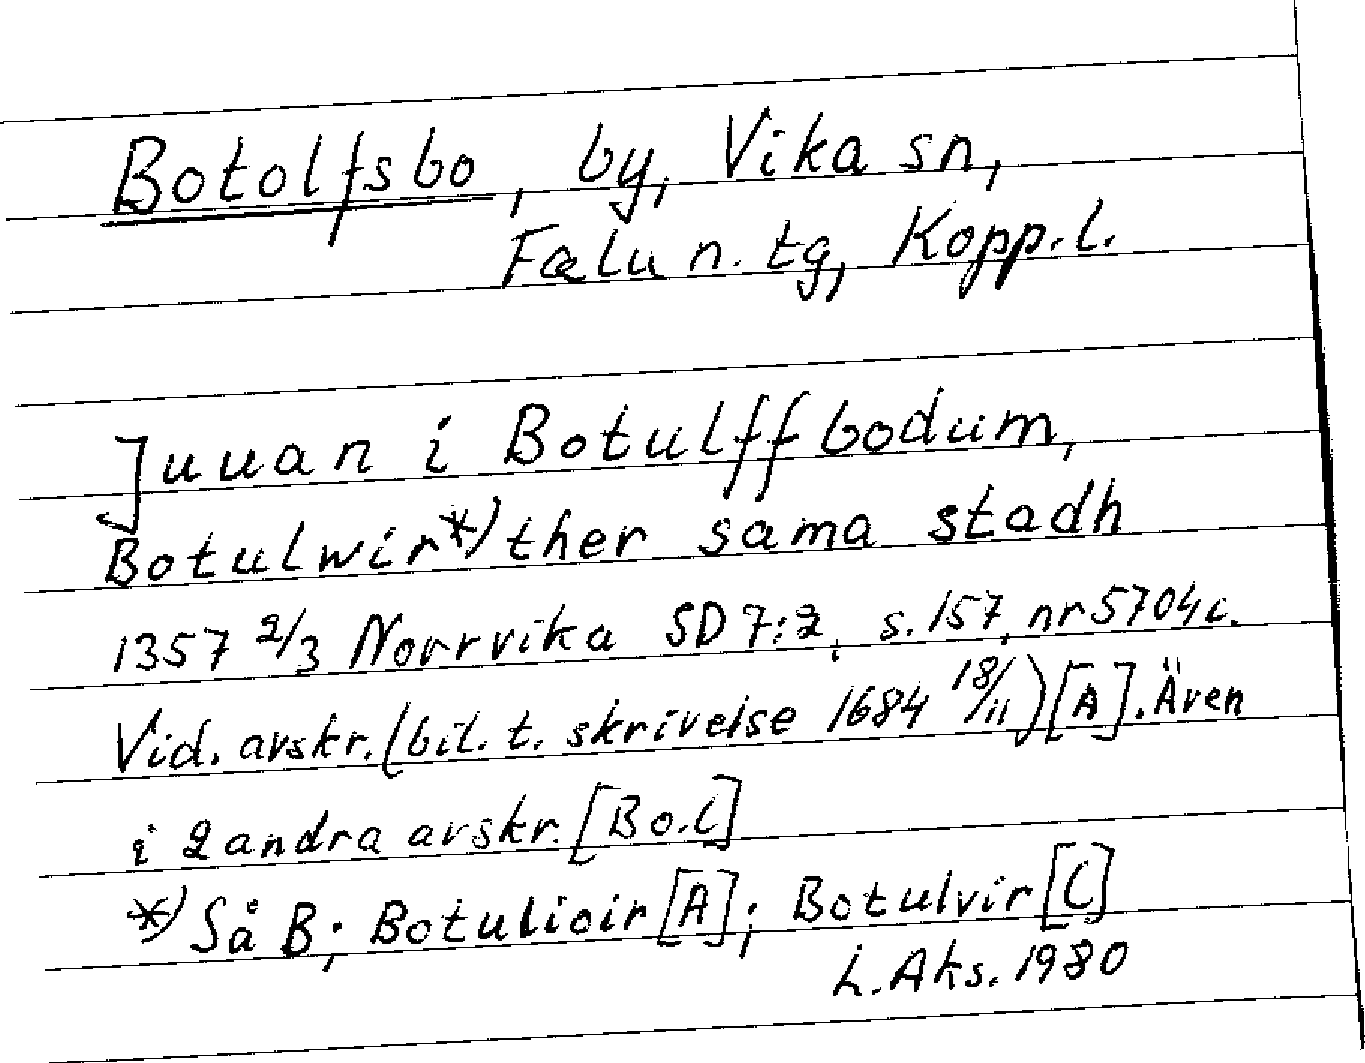 Botolfsbo, by, Vika sn,
Falu n. tg, Kopp.l.
Juuan i Botulffbodum,
Botulwir*) ther sama stadh
1357 2/3 Norrvika SD 7:2, s. 157, nr 5704 c.
Vid. avskr. (bil. t. skrivelse 1684 18/11) [A]. Även
i 2 andra avskr. [B o. C]
*) Så B; Botulioir [A]; Botulvir [C]
L. Aks. 1980